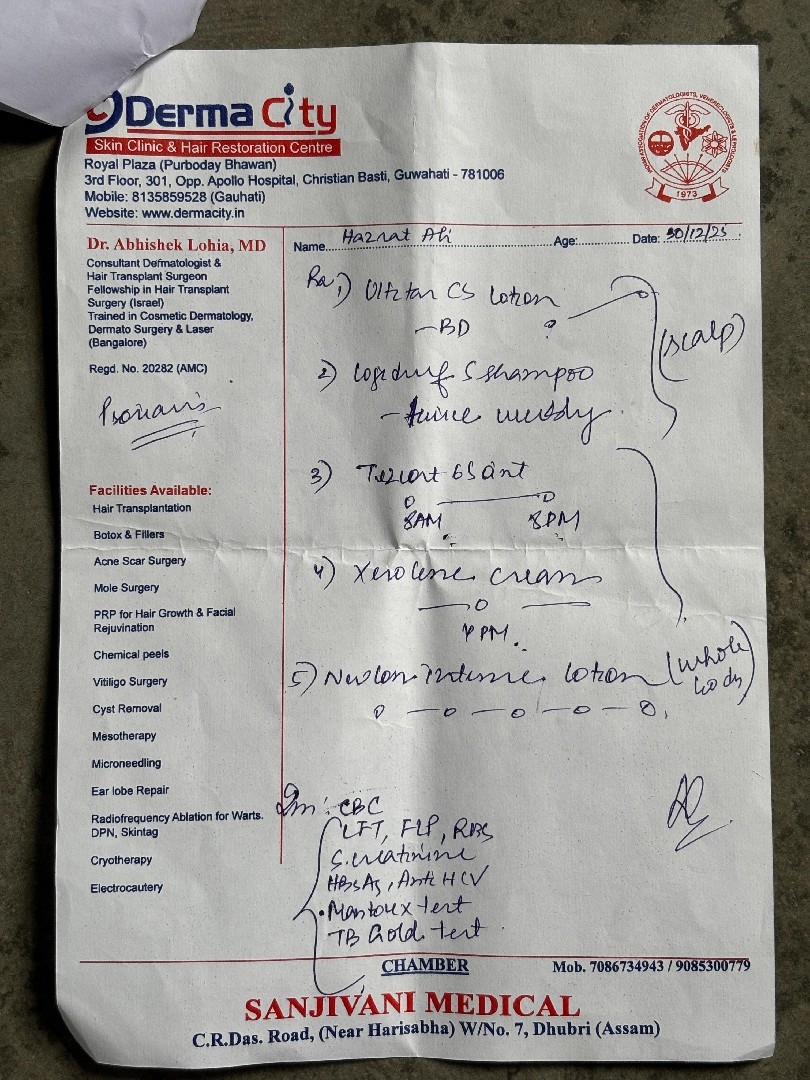 Derma City
Skin Clinic & Hair Restoration Centre
Royal Plaza (Purboday Bhawan)
3rd Floor, 301, Opp. Apollo Hospital, Christian Basti, Guwahati - 781006
Mobile: 8135859528 (Gauhati)
Website: www.dermacity.in
1973
Dr. Abhishek Lohia, MD
Consultant Dermatologist &
Hair Transplant Surgeon
Fellowship in Hair Transplant
Surgery (Israel)
Trained in Cosmetic Dermatology,
Dermato Surgery & Laser
(Bangalore)
Regd. No. 20282 (AMC)
Psoriasis
Facilities Available:
Hair Transplantation
Botox & Fillers
Acne Scar Surgery
Mole Surgery
PRP for Hair Growth & Facial
Rejuvination
Chemical peels
Vitiligo Surgery
Cyst Removal
Mesotherapy
Microneedling
Ear lobe Repair
Radiofrequency Ablation for Warts.
DPN, Skintag
Cryotherapy
Electrocautery
Name Hazrat Ali Age: Date: 30/12/25
1) CS lotion
- BD
(scalp)
2) S shampoo
- twice weekly
3) 6S oint
8AM 8PM
4) cream
4 PM
5) lotion (whole
body)
CBC
LFT, FLP, RBS
S. creatinine
HBsAg, Anti HCV
Mantoux test
TB Gold test
CHAMBER
Mob. 7086734943 / 9085300779
SANJIVANI MEDICAL
C.R.Das. Road, (Near Harisabha) W/No. 7, Dhubri (Assam)